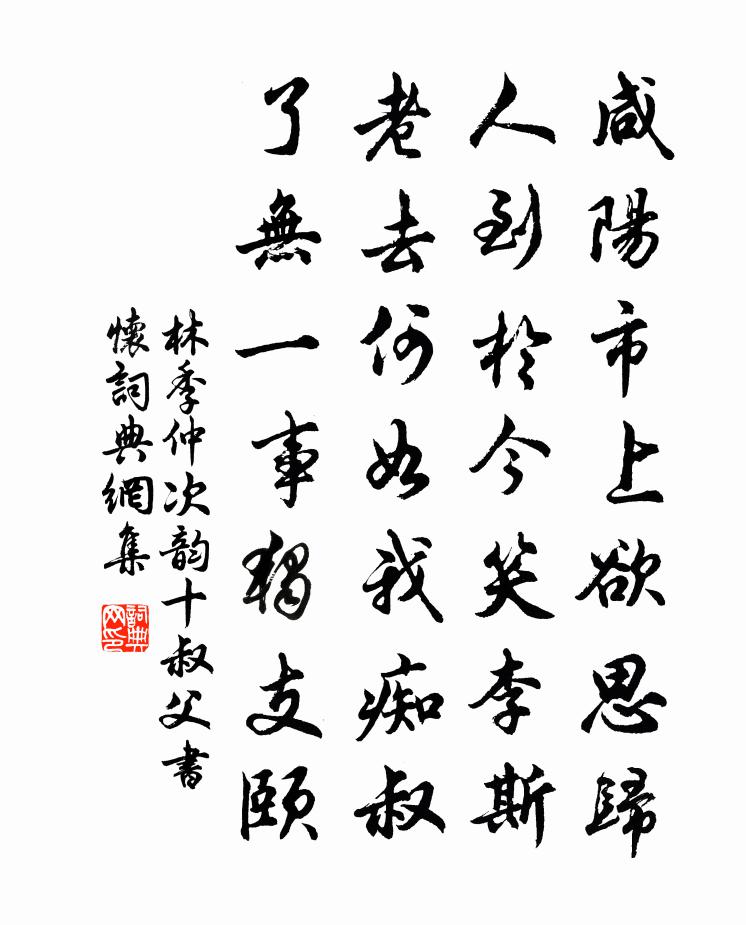 咸陽市上欲思歸
人到於今笑李斯
老去何如我痴叔
了無一事獨支頤
林季仲次韵十叔父書
懷詞典網集
詞典
网印